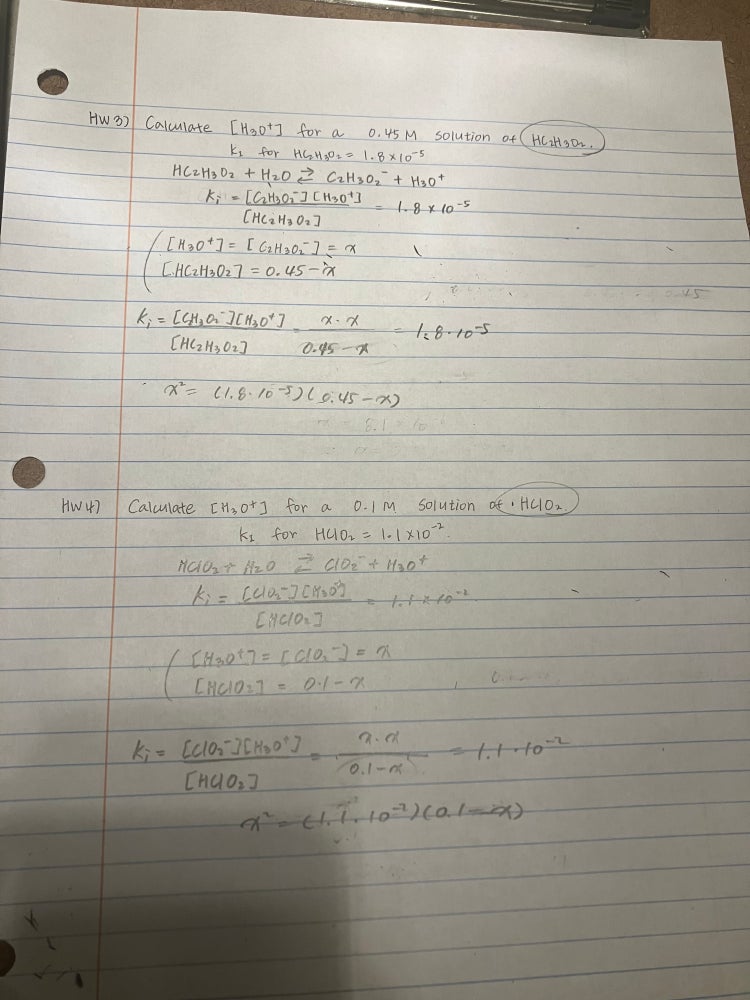 HW 3) Calculate [H3O+] for a 0.45 M solution of HC2H3O2.
K1 for HC2H3O2 = 1.8 × 10⁻⁵
HC2H3O2 + H2O ⇄ C2H3O2⁻ + H3O⁺
Ki = [C2H3O2⁻][H3O⁺] / [HC2H3O2] = 1.8 × 10⁻⁵
[H3O⁺] = [C2H3O2⁻] = x
[HC2H3O2] = 0.45 - x
Ki = [C2H3O2⁻][H3O⁺] / [HC2H3O2] = x · x / 0.45 - x = 1.8 · 10⁻⁵
x² = (1.8 · 10⁻⁵)(0.45 - x)
HW 4) Calculate [H3O⁺] for a 0.1 M solution of HClO2.
K1 for HClO2 = 1.1 × 10⁻².
HClO2 + H2O ⇄ ClO2⁻ + H3O⁺
Ki = [ClO2⁻][H3O⁺] / [HClO2] = 1.1 × 10⁻²
[H3O⁺] = [ClO2⁻] = x
[HClO2] = 0.1 - x
Ki = [ClO2⁻][H3O⁺] / [HClO2] = x · x / 0.1 - x = 1.1 · 10⁻²
x² = (1.1 · 10⁻²)(0.1 - x)